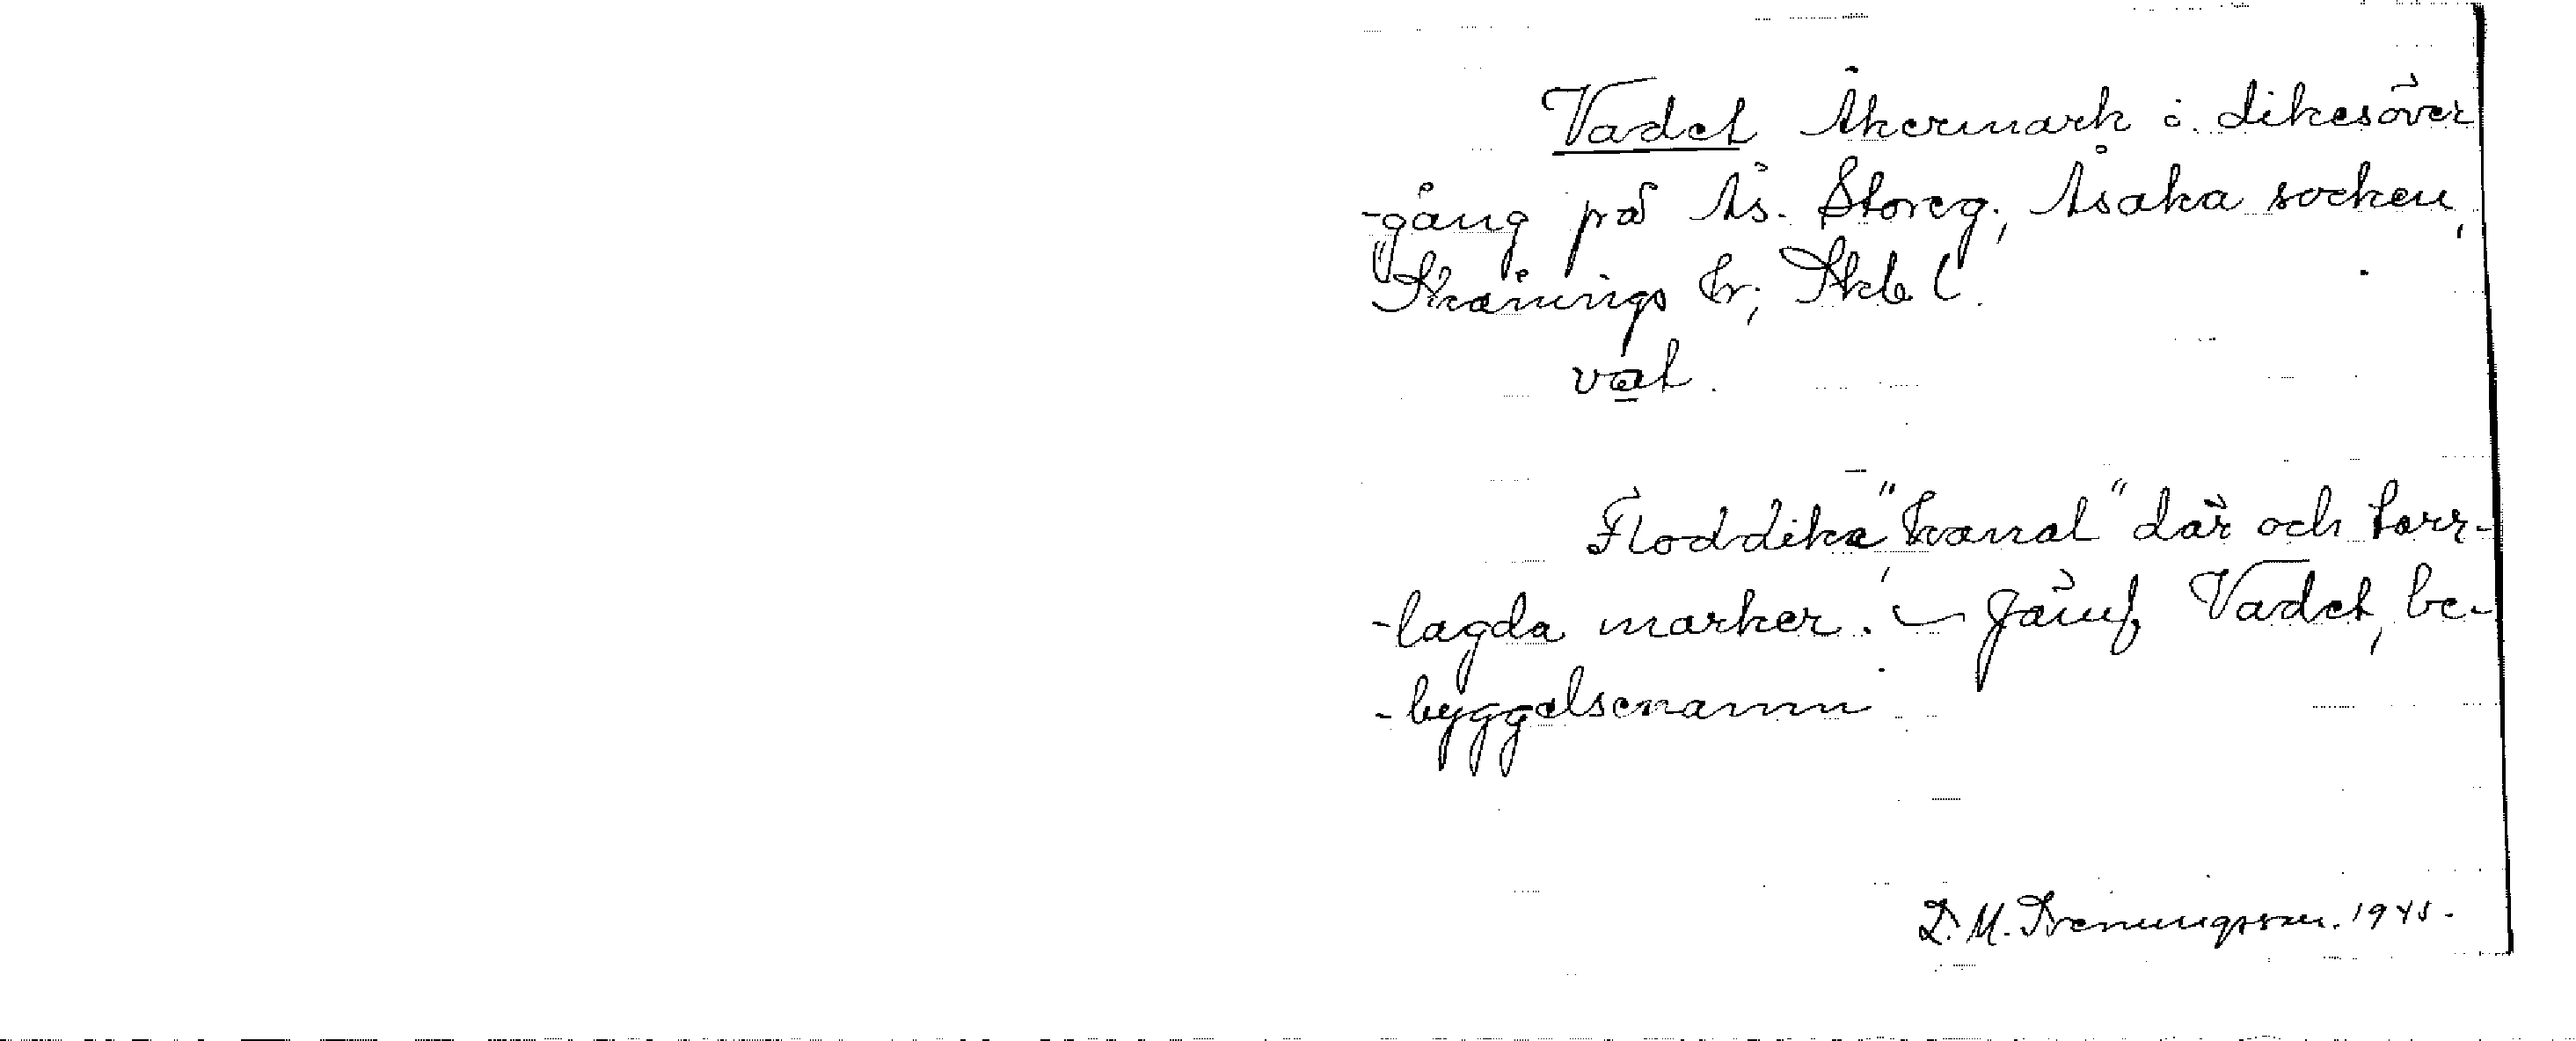 Vadet Åkermark o. dikesöver
-gång på Ås. Storeg., Åsaka socken,
Skånings hr; Skb l.
vat.
Floddike, "kanal" där och torr-
-lagda marker. – Jämf. Vadet, be-
-byggelsenamn
D. M. 1945.